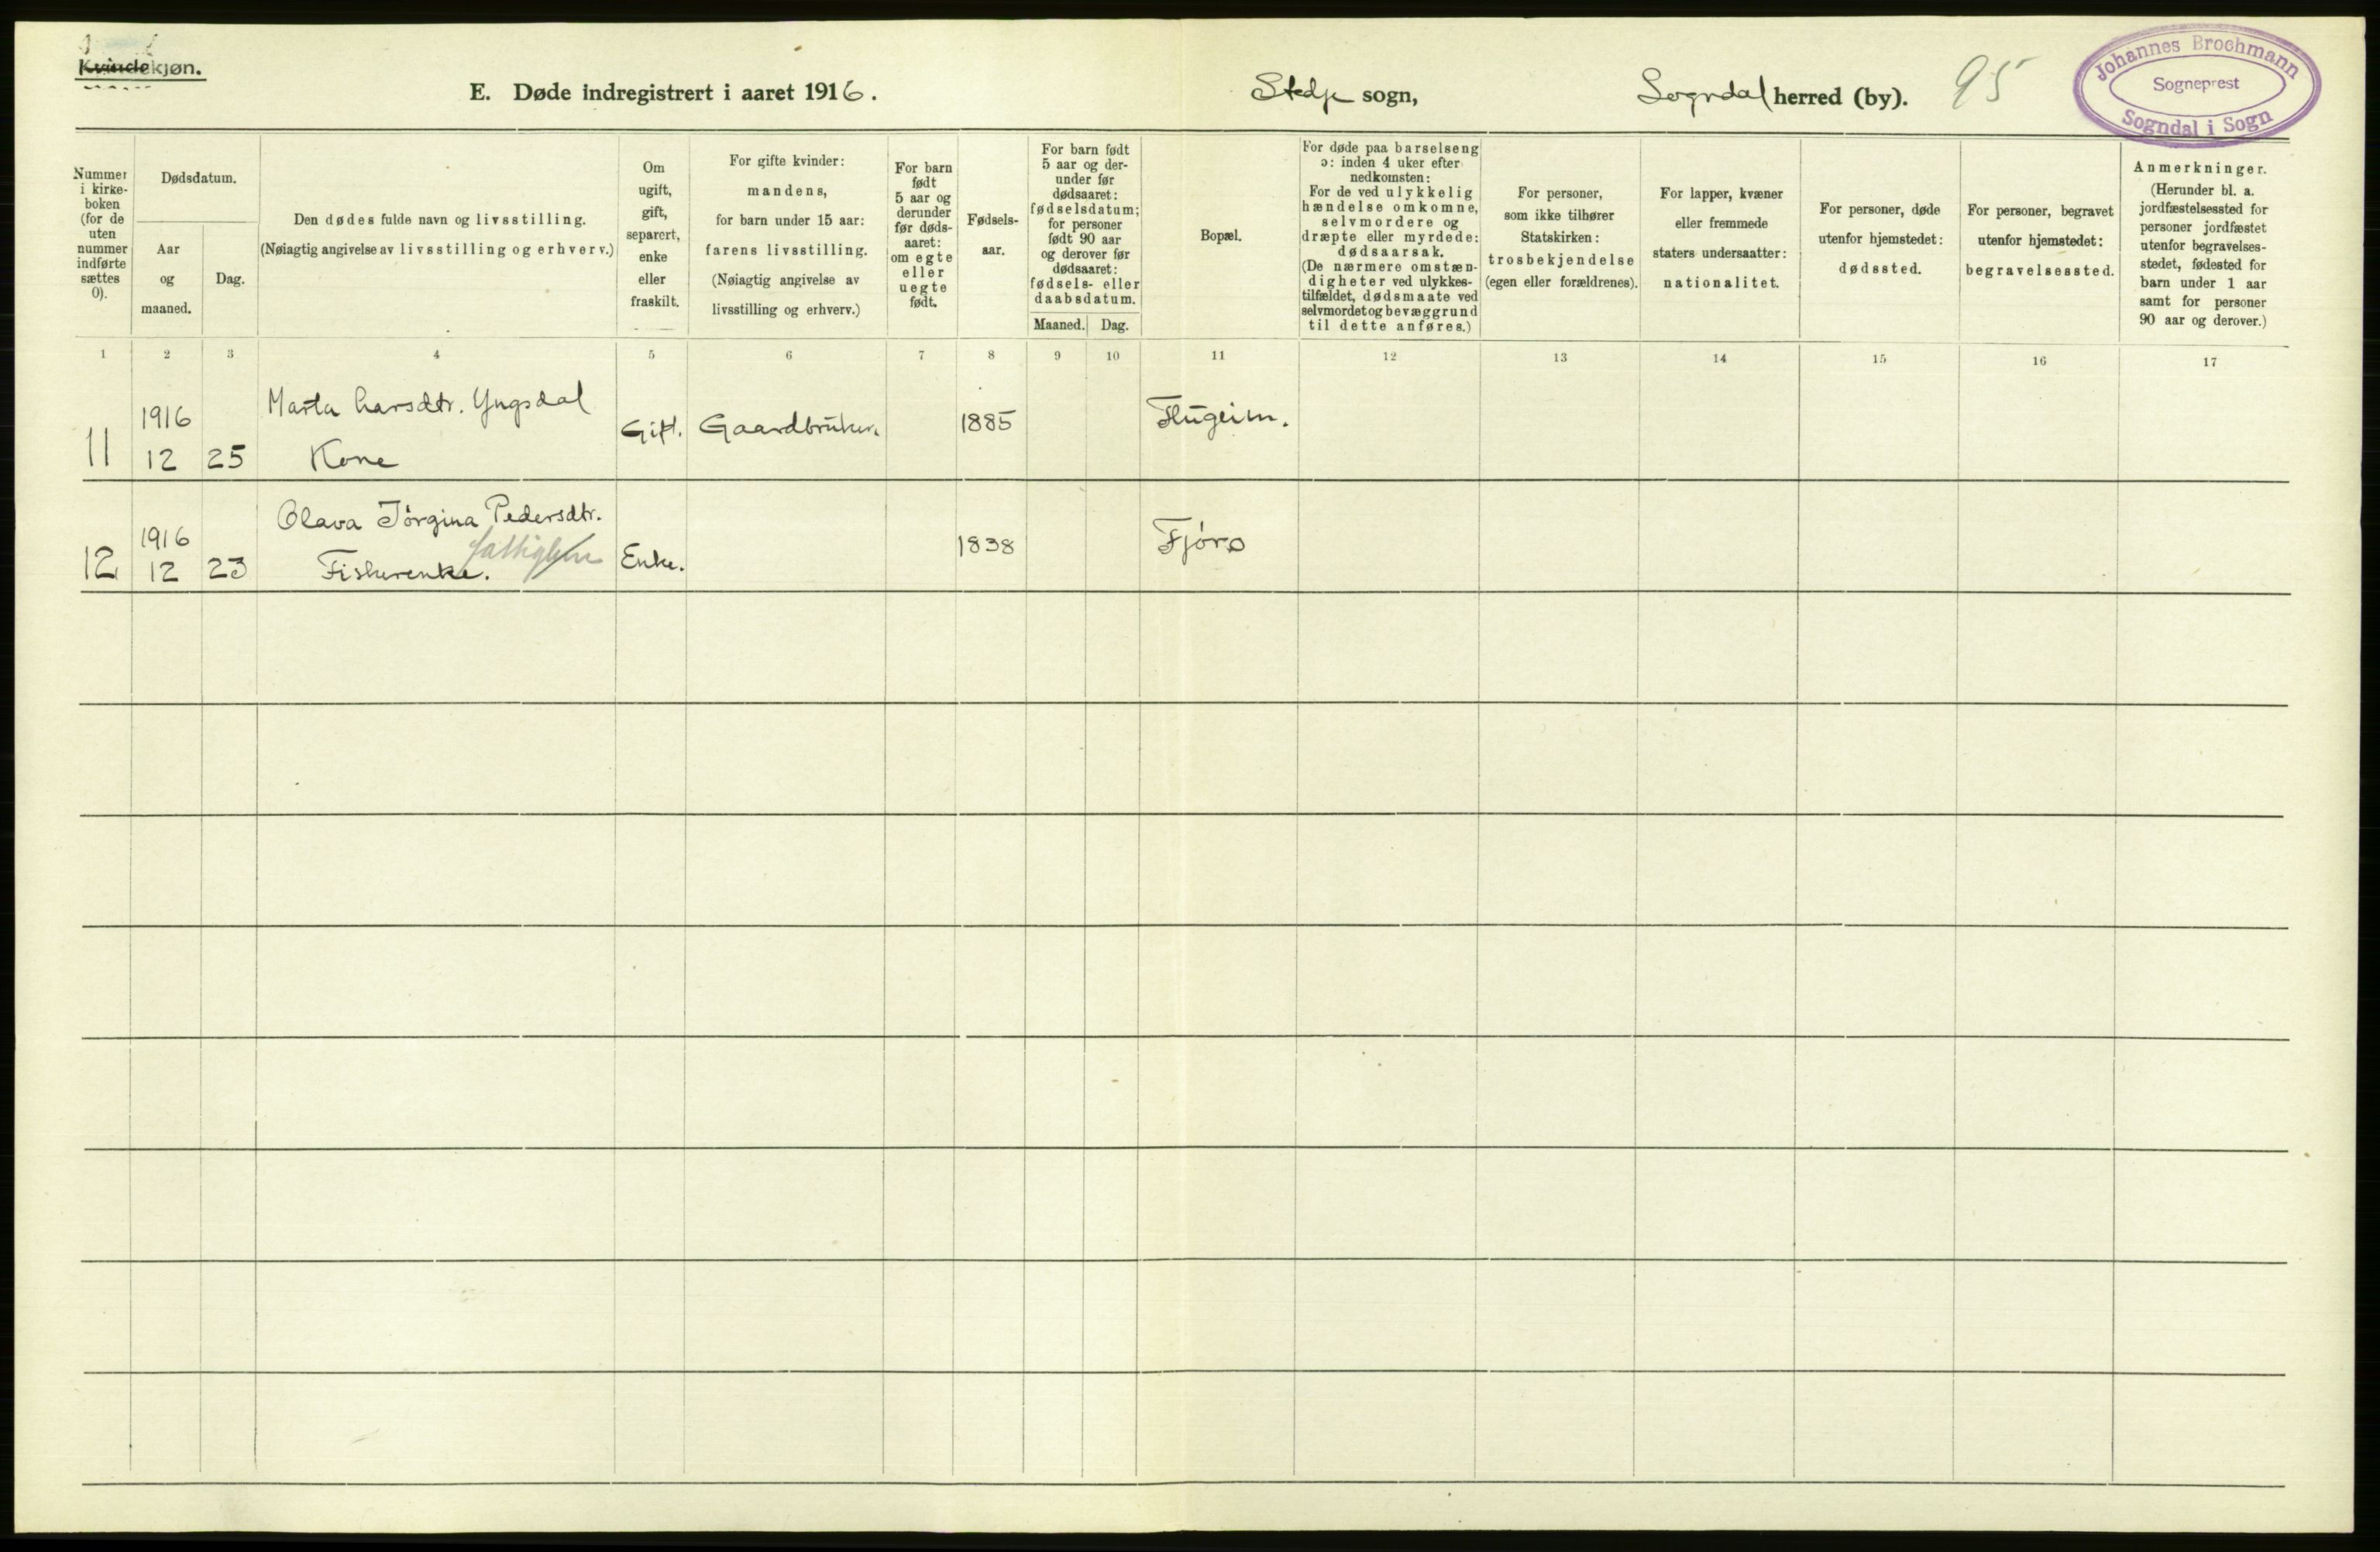 Kvindekjøn.
E. Døde indregistrert i aaret 1916. Stedje sogn, Sogndal herred (by). 95
Johannes Brochmann
Sogneprest
Sogndal i Sogn
Nummer
i kirke-
boken
(for de
uten
nummer
indførte
sættes
0).
Dødsdatum.
Aar
og
maaned.
Dag.
Den dødes fulde navn og livsstilling.
(Nøiagtig angivelse av livsstilling og erhverv.)
Om
ugift,
gift,
separert,
enke
eller
fraskilt.
For gifte kvinder:
mandens,
for barn under 15 aar:
farens livsstilling.
(Nøiagtig angivelse av
livsstilling og erhverv.)
For barn
født
5 aar og
derunder
før døds-
aaret:
om egte
eller
uegte
født.
Fødsels-
aar.
For barn født
5 aar og der-
under før
dødsaaret:
fødselsdatum;
for personer
født 90 aar
og derover før
dødsaaret:
fødsels- eller
daabsdatum.
Maaned. Dag.
Bopæl.
For døde paa barselseng
ɔ: inden 4 uker efter
nedkomsten:
For de ved ulykkelig
hændelse omkomne,
selvmordere og
dræpte eller myrdede:
dødsaarsak.
(De nærmere omstæn-
digheter ved ulykkes-
tilfældet, dødsmaate ved
selvmordet og bevæggrund
til dette anføres.)
For personer,
som ikke tilhører
Statskirken:
trosbekjendelse
(egen eller forældrenes).
For lapper, kvæner
eller fremmede
staters undersaatter:
nationalitet.
For personer, døde
utenfor hjemstedet:
dødssted.
For personer, begravet
utenfor hjemstedet:
begravelsessted.
Anmerkninger.
(Herunder bl. a.
jordfæstelsessted for
personer jordfæstet
utenfor begravelses-
stedet, fødested for
barn under 1 aar
samt for personer
90 aar og derover.)
1 2 3 4 5 6 7 8 9 10 11 12 13 14 15 16 17
11 1916 12 25 Marta Larsdtr. Yngsdal
Kone Gift. Gaardbruker. 1885 Flugeim.
12 1916 12 23 Olava Jörgina Pedersdtr.
Fiskerenke. Enke. 1838 Fjöro